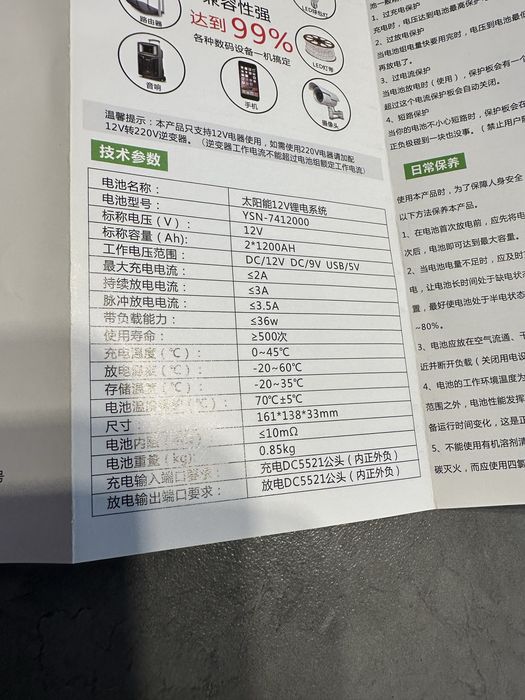 兼容性强
达到99%
各种数码设备一机搞定
路由器
LED球泡灯
LED灯带
音响
手机
摄像头
温馨提示：本产品只支持12V电器使用，如需使用220V电器请加配
12V转220V逆变器。（逆变器工作电流不能超过电池组额定工作电流）
技术参数
电池名称： 太阳能12V锂电系统
电池型号： YSN-7412000
标称电压（V）： 12V
标称容量（Ah): 2*1200AH
工作电压范围： DC/12V DC/9V USB/5V
最大充电电流： ≤2A
持续放电电流： ≤3A
脉冲放电电流： ≤3.5A
带负载能力： ≤36w
使用寿命： ≥500次
充电温度（℃）： 0~45℃
放电温度（℃）： -20~60℃
存储温度（℃）： -20~35℃
电池温度 （℃）： 70℃±5℃
尺寸 161*138*33mm
电池内阻 ≤10mΩ
电池重量（kg): 0.85kg
充电输入端口要求： 充电DC5521公头（内正外负）
放电输出端口要求： 放电DC5521公头（内正外负）
1、过充电保护
充电时，电压达到电池最高保护
2、过放电保护
当电池组电量快要用完时，电压到电池最低
再放电了。
3、过电流保护
当电池放电时（使用），保护板会有一个
超过这个电流保护板会自动关闭。
4、短路保护
当你的电池不小心短路时，保护板会在
正负极碰到一块也没事。（禁止用户
日常保养
使用本产品时，为了保障人身安全
以下方法保养本产品。
1、在电池首次放电前，应先将电
次后，电池即可达到最大容量。
2、当电池电量不足时，应及时
电，让电池长时间处于缺电状态
置，最好使电池处于半电状态
~80%。
3、电池应放在空气流通、干
近并断开负载（关闭用电设
4、电池的工作环境温度为
范围之外，电池性能发挥
备运行时间变化，这是正
5、不能使用有机溶剂清
碳灭火，而应使用四氯
号